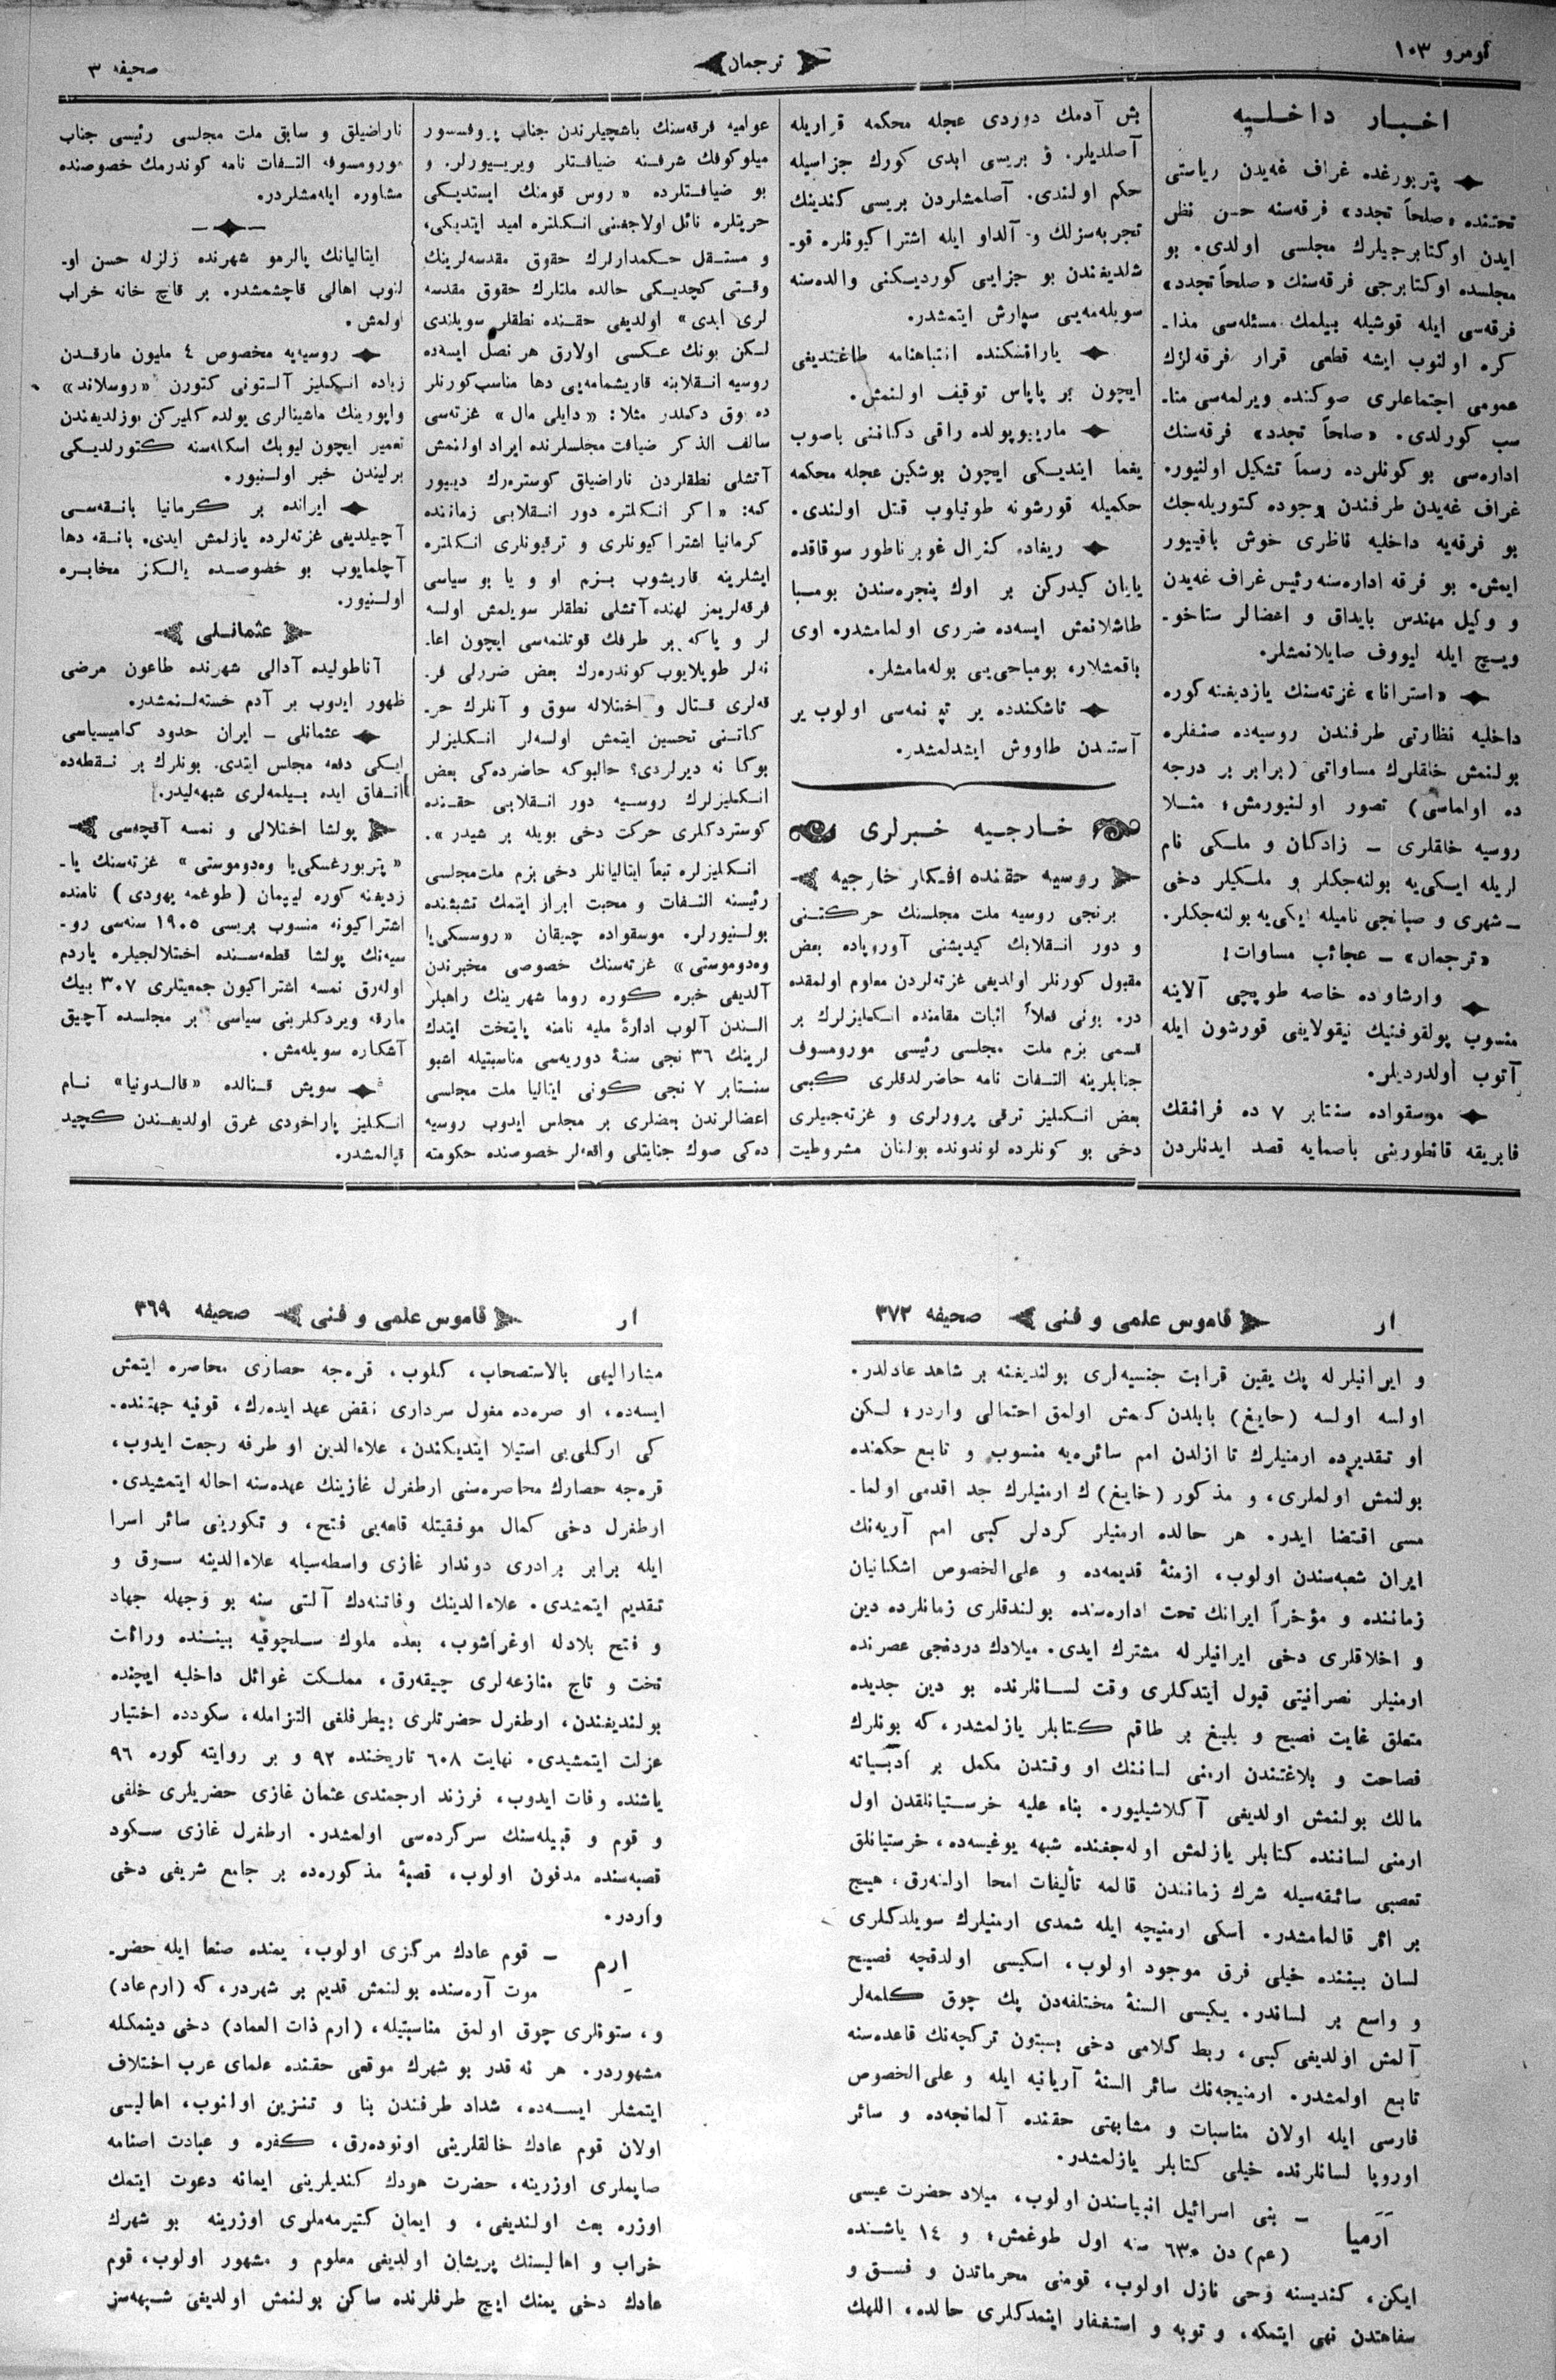 نومرو ١٠٣
ترجمان
صحیفه ٣
اخبار داخلیه
پتربورغده غراف غه‌یدن ریاستی
تحتنده «صلحاً تجدد» فرقه‌سنه حسن نظر
ایدن اوكتابرجیلرك مجلسی اولدی. بو
مجلسده اوكتابرجی فرقه‌سنك «صلحاً تجدد»
فرقه‌سی ایله قوشیله بیلمك مسئله‌سی مذا-
كره اولنوب ایشه قطعی قرار فرقه‌لرك
عمومی اجتماعلری صوكنده ویرلمه‌سی منا-
سب كورلدی. «صلحاً تجدد» فرقه‌سنك
اداره‌سی بو كونلرده رسماً تشكیل اولنیور.
غراف غه‌یدن طرفندن وجوده كتوریله‌جك
بو فرقه‌یه داخلیه ناظری خوش باقییور
ایمش. بو فرقه اداره‌سنه رئیس غراف غه‌یدن
و وكیل مهندس بایداق و اعضالر ستاخو-
ویچ ایله لیووف صایلانمشلر.
«استرانا» غزته‌سنك یازدیغنه كوره
داخلیه نظارتی طرفندن روسیه‌ده صنفلره
بولنمش خلقلرك مساواتی (برابر بر درجه
ده اولماسی) تصور اولنیورمش؛ مثلا
روسیه خلقلری - زادكان و ملكی نام
لریله ایكی‌یه بولنه‌جكلر و ملكیلر دخی
- شهری و صپانجی نامیله ایكی‌یه بولنه‌جكلر.
«ترجمان» - عجائب مساوات!
وارشاوده خاصه طوپچی آلاینه
منسوب پولقوفنیك نیقولایفی قورشون ایله
آتوب أولدردیلر.
موسقواده سنتابر ٧ ده فرانقك
فابریقه قانطورینی باصمایه قصد ایدنلردن
بش آدمك دوردی عجله محكمه قراریله
آصلدیلر. و بریسی ابدی كورك جزاسیله
حكم اولندی. آصلمشلردن بریسی كندینك
تجربه‌سزلك و آلداو ایله اشتراكیونلره قو-
شلدیغندن بو جزایی كوردیكنی والده‌سنه
سویله‌مه‌یی سپارش ایتمشدر.
یاراقنسكنده انتباهنامه طاغتدیغی
ایچون بر پاپاس توقیف اولنمش.
ماریبوپولده راقی دكاننی باصوب
یغما ایتدیكی ایچون بوشكین عجله محكمه
حكمیله قورشونه طوتیلوب قتل اولندی.
ریغاده كنرال غوبرناطور سوقاقده
یایان كیدركن بر اوك پنجره‌سندن بومبا
طاشلانمش ایسه‌ده ضرری اولمامشدر. اوی
باقمشلار، بومباجی‌یی بوله‌مامشلر.
تاشكندده یر تپرنمه‌سی اولوب یر
آستندن طاووش ایشدلمشدر.
خارجیه خبرلری
روسیه حقنده افكار خارجیه
برنجی روسیه ملت مجلسنك حركتنی
و دور انقلابك كیدیشنی آوروپاده بعض
مقبول كورنلر اولدیغی غزته‌لردن معلوم اولمقده
در. بونی فعلاً اثبات مقامنده انكلیزلرك بر
قسمی بزم ملت مجلسی رئیسی مورومسوف
جنابلرینه التفات نامه حاضرلدقلری كبی
بعض انكلیز ترقی پرورلری و غزته‌جیلری
دخی بو كونلرده لوندونده بولنان مشروطیت
عوامیه فرقه‌سنك باشچیلرندن جناب پروفسسور
میلوكوفك شرفنه ضیافتلر ویریییورلر. و
بو ضیافتلرده «روس قومنك ایستدیكی
حریتلره نائل اولاجغنی انكلتره امید ایتدیكی،
و مستقل حكمدارلرك حقوق مقدسه‌لرینك
وقتی كچدیكی حالده ملتلرك حقوق مقدسه
لری ابدی» اولدیغی حقنده نطقلر سویلندی
لكن بونك عكسی اولارق هر نصل ایسه‌ده
روسیه انقلابنه قاریشمامه‌یی دها مناسب كورنلر
ده یوق دكلدر مثلا: «دایلی مال» غزته‌سی
سالف الذكر ضیافت مجلسلرنده ایراد اولنمش
آتشلی نطقلردن ناراضیلق كوستره‌رك دییور
كه: «اكر انكلتره دور انقلابی زماننده
كرمانیا اشتراكیونلری و ترقیونلری انكلتره
ایشلرینه قاریشوب بزم او و یا بو سیاسی
فرقه‌لریمز لهنده آتشلی نطقلر سویلمش اولسه
لر و یاكه بر طرفك قوتلنمه‌سی ایچون اعا-
نه‌لر طوپلایوب كوندره‌رك بعض ضررلی فر-
قه‌لری قتال و اختلاله سوق و آنلرك حر-
كاتنی تحسین ایتمش اولسه‌لر انكلیزلر
بوكا نه دیرلردی؟ حالبوكه حاضرده‌كی بعض
انكلیزلرك روسیه دور انقلابی حقنده
كوستردكلری حركت دخی بویله بر شیدر».
انكلیزلره تبعاً ایتالیانلر دخی بزم ملت‌مجلسی
رئیسنه التفات و محبت ابراز ایتمك تشبثنده
بولنیورلر. موسقواده چیقان «روسسكی‌یا
وه‌دوموستی» غزته‌سنك خصوصی مخبرندن
آلدیغی خبره كوره روما شهرینك راهبلر
الندن آلوب ادارۀ ملیه نامنه پایتخت ایتدك
لرینك ٣٦ نجی سنۀ دوریه‌سی مناسبتیله اشبو
سنتابر ٧ نجی كونی ایتالیا ملت مجلسی
اعضالرندن بعضلری بر مجلس ایدوب روسیه
ده‌كی صوك جنایتلی واقعه‌لر خصوصنده حكومته
ناراضیلق و سابق ملت مجلسی رئیسی جناب
مورومسوفه التفات نامه كوندرمك خصوصنده
مشاوره ایله‌مشلردر.
ایتالیانك پالرمو شهرنده زلزله حسن او-
لنوب اهالی قاچشمشدر. بر قاچ خانه خراب
اولمش.
روسیه‌یه مخصوص ٤ ملیون مارقدن
زیاده انكلیز آلتونی كتورن «روسلاند»
واپورینك ماشینالری یولده كلیركن بوزلدیغندن
تعمیر ایچون لیوبك اسكله‌سنه كتورلدیكی
برلیندن خبر اولنیور.
ایرانده بر كرمانیا بانقه‌سی
آچیلدیغی غزته‌لرده یازلمش ایدی. بانقه دها
آچلمایوب بو خصوصده یالكز مخابره
اولنیور.
عثمانلی
آناطولیده آدالی شهرنده طاعون مرضی
ظهور ایدوب بر آدم خسته‌لنمشدر.
عثمانلی - ایران حدود كامیسیاسی
ایكی دفعه مجلس ایتدی. بونلرك بر نقطه‌ده
اتفاق ایده بیلمه‌لری شبهه‌لیدر.
پولشا اختلالی و نمسه آقچه‌سی
«پتربورغسكی‌یا وه‌دوموستی» غزته‌سنك یا-
زدیغنه كوره لیپمان (طوغمه یهودی) نامنده
اشتراكیونه منسوب بریسی ١٩٠٥ سنه‌سی رو-
سیه‌نك پولشا قطعه‌سنده اختلالجیلره یاردم
اوله‌رق نمسه اشتراكیون جمعیتلری ٣٠٧ بیك
مارقه ویردكلرینی سیاسی بر مجلسده آچیق
آشكاره سویله‌مش.
سویش قنالده «قالدونیا» نام
انكلیز پاراخودی غرق اولدیغندن كچید
قپالمشدر.
ار
قاموس علمی و فنی
صحیفه ٣٧٢
و ایرانیلرله پك یقین قرابت جنسیه‌لری بولندیغنه بر شاهد عادلدر.
اولسه اولسه (حایغ) بابلدن كلمش اولمق احتمالی واردر؛ لكن
او تقدیرده ارمنیلرك تا ازلدن امم سائره‌یه منسوب و تابع حكمنده
بولنمش اولملری، و مذكور (خایغ) ك ارمنیلرك جد اقدمی اولما-
مسی اقتضا ایدر. هر حالده ارمنیلر كردلر كبی امم آریه‌نك
ایران شعبه‌سندن اولوب، ازمنۀ قدیمه‌ده و علی‌الخصوص اشكانیان
زماننده و مؤخراً ایرانك تحت اداره‌سنده بولندقلری زمانلرده دین
و اخلاقلری دخی ایرانیلرله مشترك ایدی. میلادك دردنجی عصرنده
ارمنیلر نصرانیتی قبول ایتدكلری وقت لسانلرنده بو دین جدیده
متعلق غایت فصیح و بلیغ بر طاقم كتابلر یازلمشدر، كه بونلرك
فصاحت و بلاغتندن ارمنی لساننك او وقتدن مكمل بر ادبیاته
مالك بولنمش اولدیغی آكلاشیلیور. بناء علیه خرستیانلقدن اول
ارمنی لساننده كتابلر یازلمش اوله‌جغنده شبهه یوغیسه‌ده، خرستیانلق
تعصبی سائقه‌سیله شرك زمانندن قالمه تألیفات امحا اولنه‌رق، هیچ
بر اثر قالمامشدر. اسكی ارمنیچه ایله شمدی ارمنیلرك سویلدكلری
لسان بیننده خیلی فرق موجود اولوب، اسكیسی اولدقچه فصیح
و واسع بر لساندر. یكیسی السنۀ مختلفه‌دن پك چوق كلمه‌لر
آلمش اولدیغی كبی، ربط كلامی دخی بستون تركجه‌نك قاعده‌سنه
تابع اولمشدر. ارمنیجه‌نك سائر السنۀ آریانیه ایله و علی‌الخصوص
فارسی ایله اولان مناسبات و مشابهتی حقنده آلمانجه‌ده و سائر
اوروپا لسانلرنده خیلی كتابلر یازلمشدر.
ارمیا - بنی اسرائیل انبیاسندن اولوب، میلاد حضرت عیسی
(عم) دن ٦٣٠ سنه اول طوغمش؛ و ١٤ یاشنده
ایكن، كندیسنه وحی نازل اولوب، قومنی محرماتدن و فسق و
سفاهتدن نهی ایتمكه، و توبه و استغفار ایتمدكلری حالده، اللهك
ار
قاموس علمی و فنی
صحیفه ٣٦٩
مشارالیهی بالاستصحاب، كلوب، قره‌جه حصاری محاصره ایتمش
ایسه‌ده، او صره‌ده مغول سرداری نقض عهد ایده‌رك، قونیه جهتنده-
كی اركلی‌یی استیلا ایتدیكندن، علاءالدین او طرفه رجعت ایدوب،
قره‌جه حصارك محاصره‌سنی ارطغرل غازینك عهده‌سنه احاله ایتمشیدی.
ارطغرل دخی كمال موفقیتله قلعه‌یی فتح، و تكورینی سائر اسرا
ایله برابر برادری دوندار غازی واسطه‌سیله علاءالدینه سوق و
تقدیم ایتمشدی. علاءالدینك وفاتنه‌دك آلتی سنه بو وجهله جهاد
و فتح بلادله اوغراشوب، بعده ملوك سلجوقیه بیننده وراثت
تخت و تاج منازعه‌لری چیقه‌رق، مملكت غوائل داخلیه ایچنده
بولندیغندن، ارطغرل حضرتلری بیطرفلغی التزامله، سكودده اختیار
عزلت ایتمشیدی. نهایت ٦٠٨ تاریخنده ٩٢ و بر روایته كوره ٩٦
یاشنده وفات ایدوب، فرزند ارجمندی عثمان غازی حضریلری خلفی
و قوم و قبیله‌سنك سركرده‌سی اولمشدر. ارطغرل غازی سكود
قصبه‌سنده مدفون اولوب، قصبۀ مذكوره‌ده بر جامع شریفی دخی
واردر.
ارم - قوم عادك مركزی اولوب، یمنده صنعا ایله حضر-
موت آره‌سنده بولنمش قدیم بر شهردر، كه (ارم عاد)
و، ستونلری چوق اولمق مناسبتیله، (ارم ذات العماد) دخی دینمكله
مشهوردر. هر نه قدر بو شهرك موقعی حقنده علمای عرب اختلاف
ایتمشلر ایسه‌ده، شداد طرفندن بنا و تزیین اولنوب، اهالیسی
اولان قوم عادك خالقلرینی اونوده‌رق، كفره و عبادت اصنامه
صاپملری اوزرینه، حضرت هودك كندیلرینی ایمانه دعوت ایتمك
اوزره بعث اولندیغی، و ایمان كتیرمه‌ملری اوزرینه بو شهرك
خراب و اهالیسنك پریشان اولدیغی معلوم و مشهور اولوب، قوم
عادك دخی یمنك ایچ طرفلرنده ساكن بولنمش اولدیغی شبهه‌سز